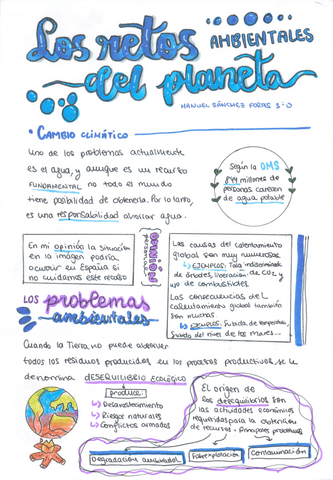 Los retos
AMBIENTALES
del planeta
MANUEL SÁNCHEZ 3º D
• CAMBIO CLIMÁTICO
Uno de los problemas actualmente
es el agua, y aunque es un recurso
FUNDAMENTAL no todo el mundo
tiene posibilidad de obtenerla. Por lo tanto,
es una responsabilidad ahorrar agua.
Según la OMS
844 millones de
personas carecen
de agua potable
En mi opinión la situación
en la imagen podría
ocurrir en España si
no cuidamos este recurso
OPINIÓN
PERSONAL
Las causas del calentamiento
global son muy numerosas
EJEMPLOS: Tala indiscriminada
de árboles, liberación de CO2 y
uso de combustibles
Las consecuencias del
calentamiento global también
son muchas
EJEMPLOS: Subida de temperatura,
Subida del nivel de los mares...
LOS problemas
ambientales
Cuando la Tierra no puede absorber
todos los residuos producidos en los procesos productivos se le
denomina DESEQUILIBRIO ECOLÓGICO
produce:
Desabastecimiento
Riesgos naturales
Conflictos armados
El origen de
los desequilibrios son
las actividades económicas
requeridas para la obtención
de recursos. Principales problemas
Degradación ambiental
Sobreexplotación
Contaminación